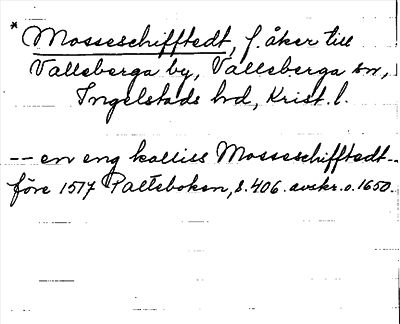 * Mosseschifftedt, f. åker till
Valleberga by, Valleberga sn,
Ingelstads hd, Krist. l.
-- en eng kalliss Mosseschifftedt --
före 1517 Palteboken, s. 406. avskr. o. 1650.